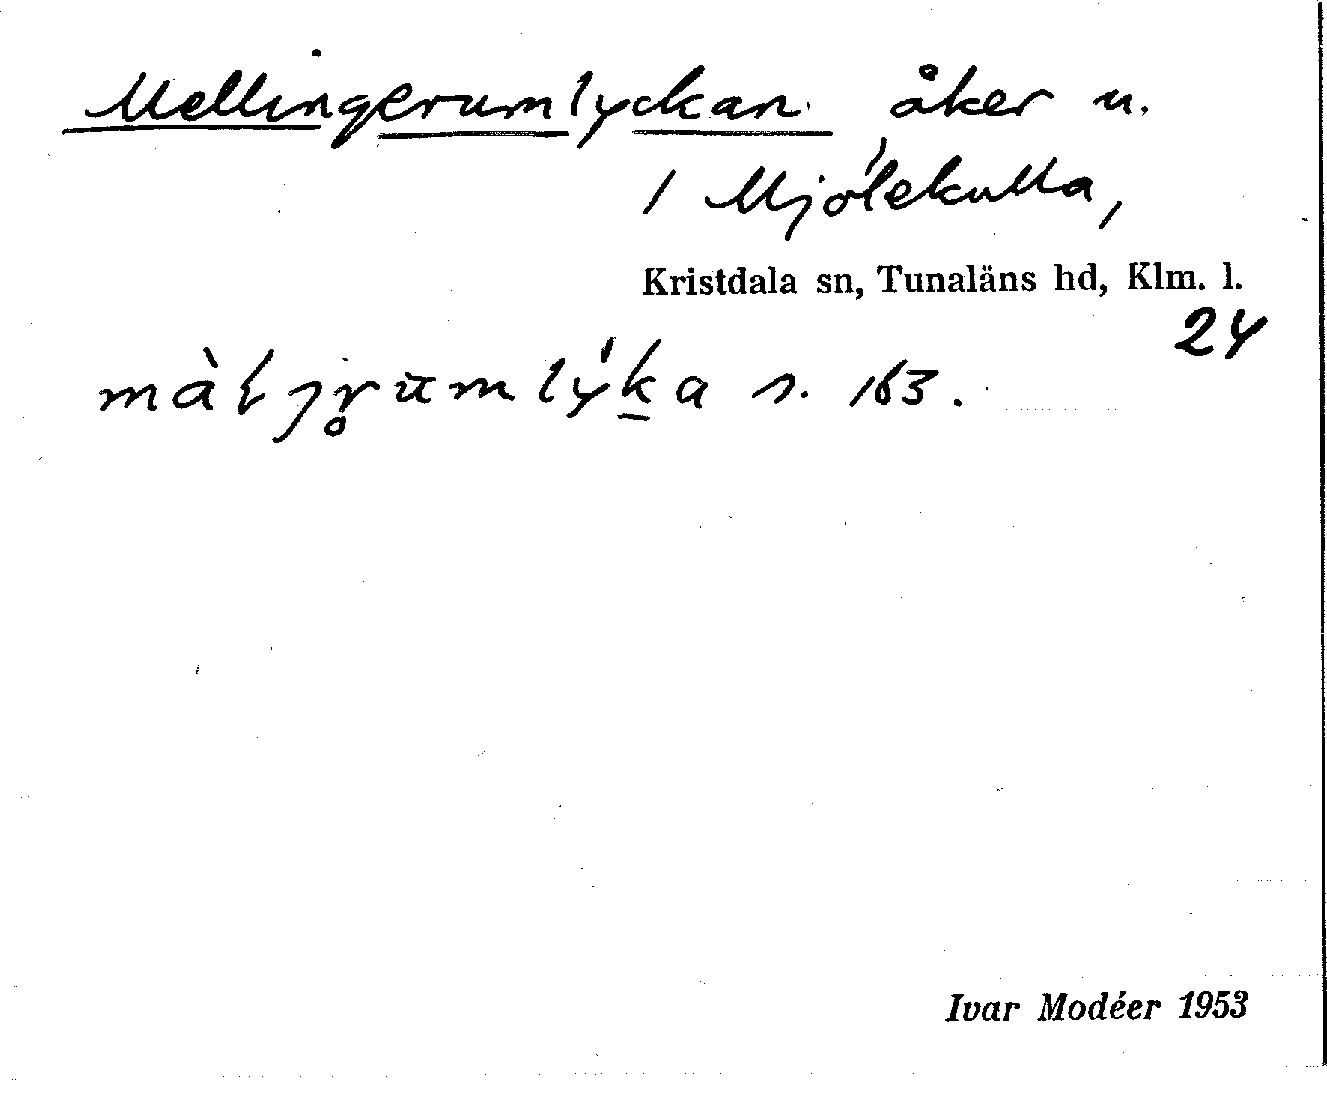 Mellingerumlyckan åker u.
1 Mjölekulla,
Kristdala sn, Tunaläns hd, Klm. l.
24
s. 163.
Ivar Modéer 1953